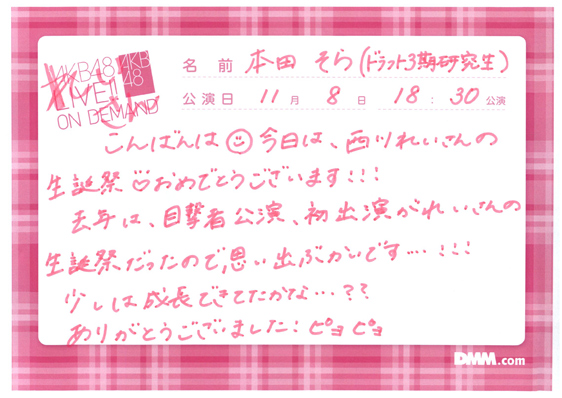 AKB48
LIVE!!
ON DEMAND
AKB
48
名 前 本田 そら(ドラフト3期研究生)
公演日 11 月 8 日 18 : 30 公演
こんばんは 今日は、西川れいさんの
生誕祭♡おめでとうございます!!!
去年は、目撃者公演、初出演がれいさんの
生誕祭だったので思い出ぶかいです…!!!
少しは成長できてたかな…??
ありがとうございました! ピヨ ピヨ
DMM.com